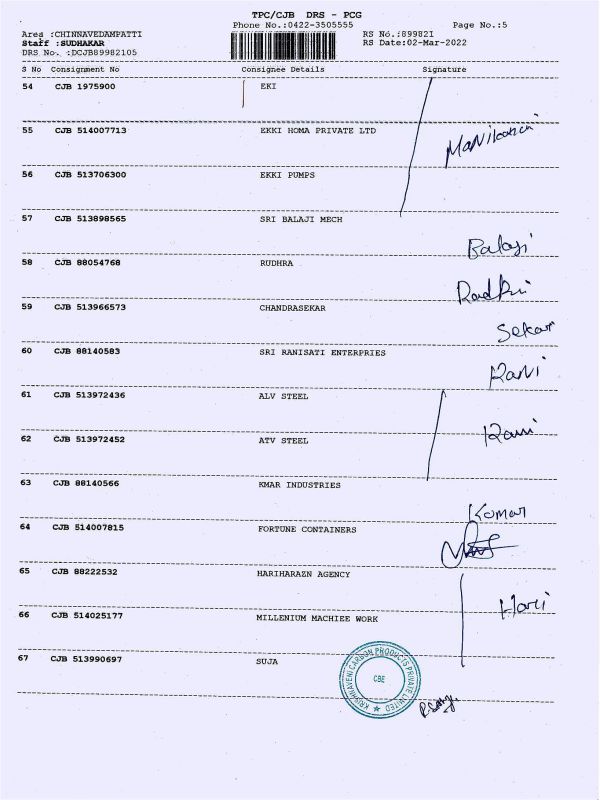 TPC/CJB DRS - PCG
Phone No.:0422-3505555 Page No.:5
Area :CHINNAVEDAMPATTI RS No.:899821
Staff :SUDHAKAR RS Date:02-Mar-2022
DRS No. :DCJB89982105
S No Consignment No Consignee Details Signature
54 CJB 1975900 EKI
55 CJB 514007713 EKKI HOMA PRIVATE LTD
56 CJB 513706300 EKKI PUMPS
57 CJB 513898565 SRI BALAJI MECH
Balaji
58 CJB 88054768 RUDHRA
59 CJB 513966573 CHANDRASEKAR
Sekar
60 CJB 88140583 SRI RANISATI ENTERPRIES
Rani
61 CJB 513972436 ALV STEEL
Rani
62 CJB 513972452 ATV STEEL
63 CJB 88140566 KMAR INDUSTRIES
Kumar
64 CJB 514007815 FORTUNE CONTAINERS
65 CJB 88222532 HARIHARAZN AGENCY
Hari
66 CJB 514025177 MILLENIUM MACHIEE WORK
67 CJB 513990697 SUJA
KRISHNAVENI CARBON PRODUCTS PRIVATE LIMITED
CBE